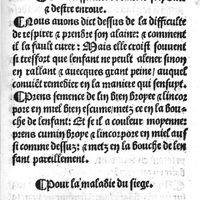 & destre taroue.
¶Nous auons dict dessus de la difficulte
de respirer & prendre son alaine: & comment
il la fault curer: Mais elle croist souuent
si tresfort que lenfant ne peult alener sinon
en rallant & auecques grant peine/ auquel
conuiet remedier en la maniere qui sensuyt.
¶Prens semence de lin bien broye & lincor
pore en miel bien escume/metz ce en la bou-
che de lenfant: Et se il a couleur moyenne
prens cumin broye & lincorpore en miel aus
si comme dessus: & metz en la bouche de len
fant pareillement.
¶Pour la maladie du siege.